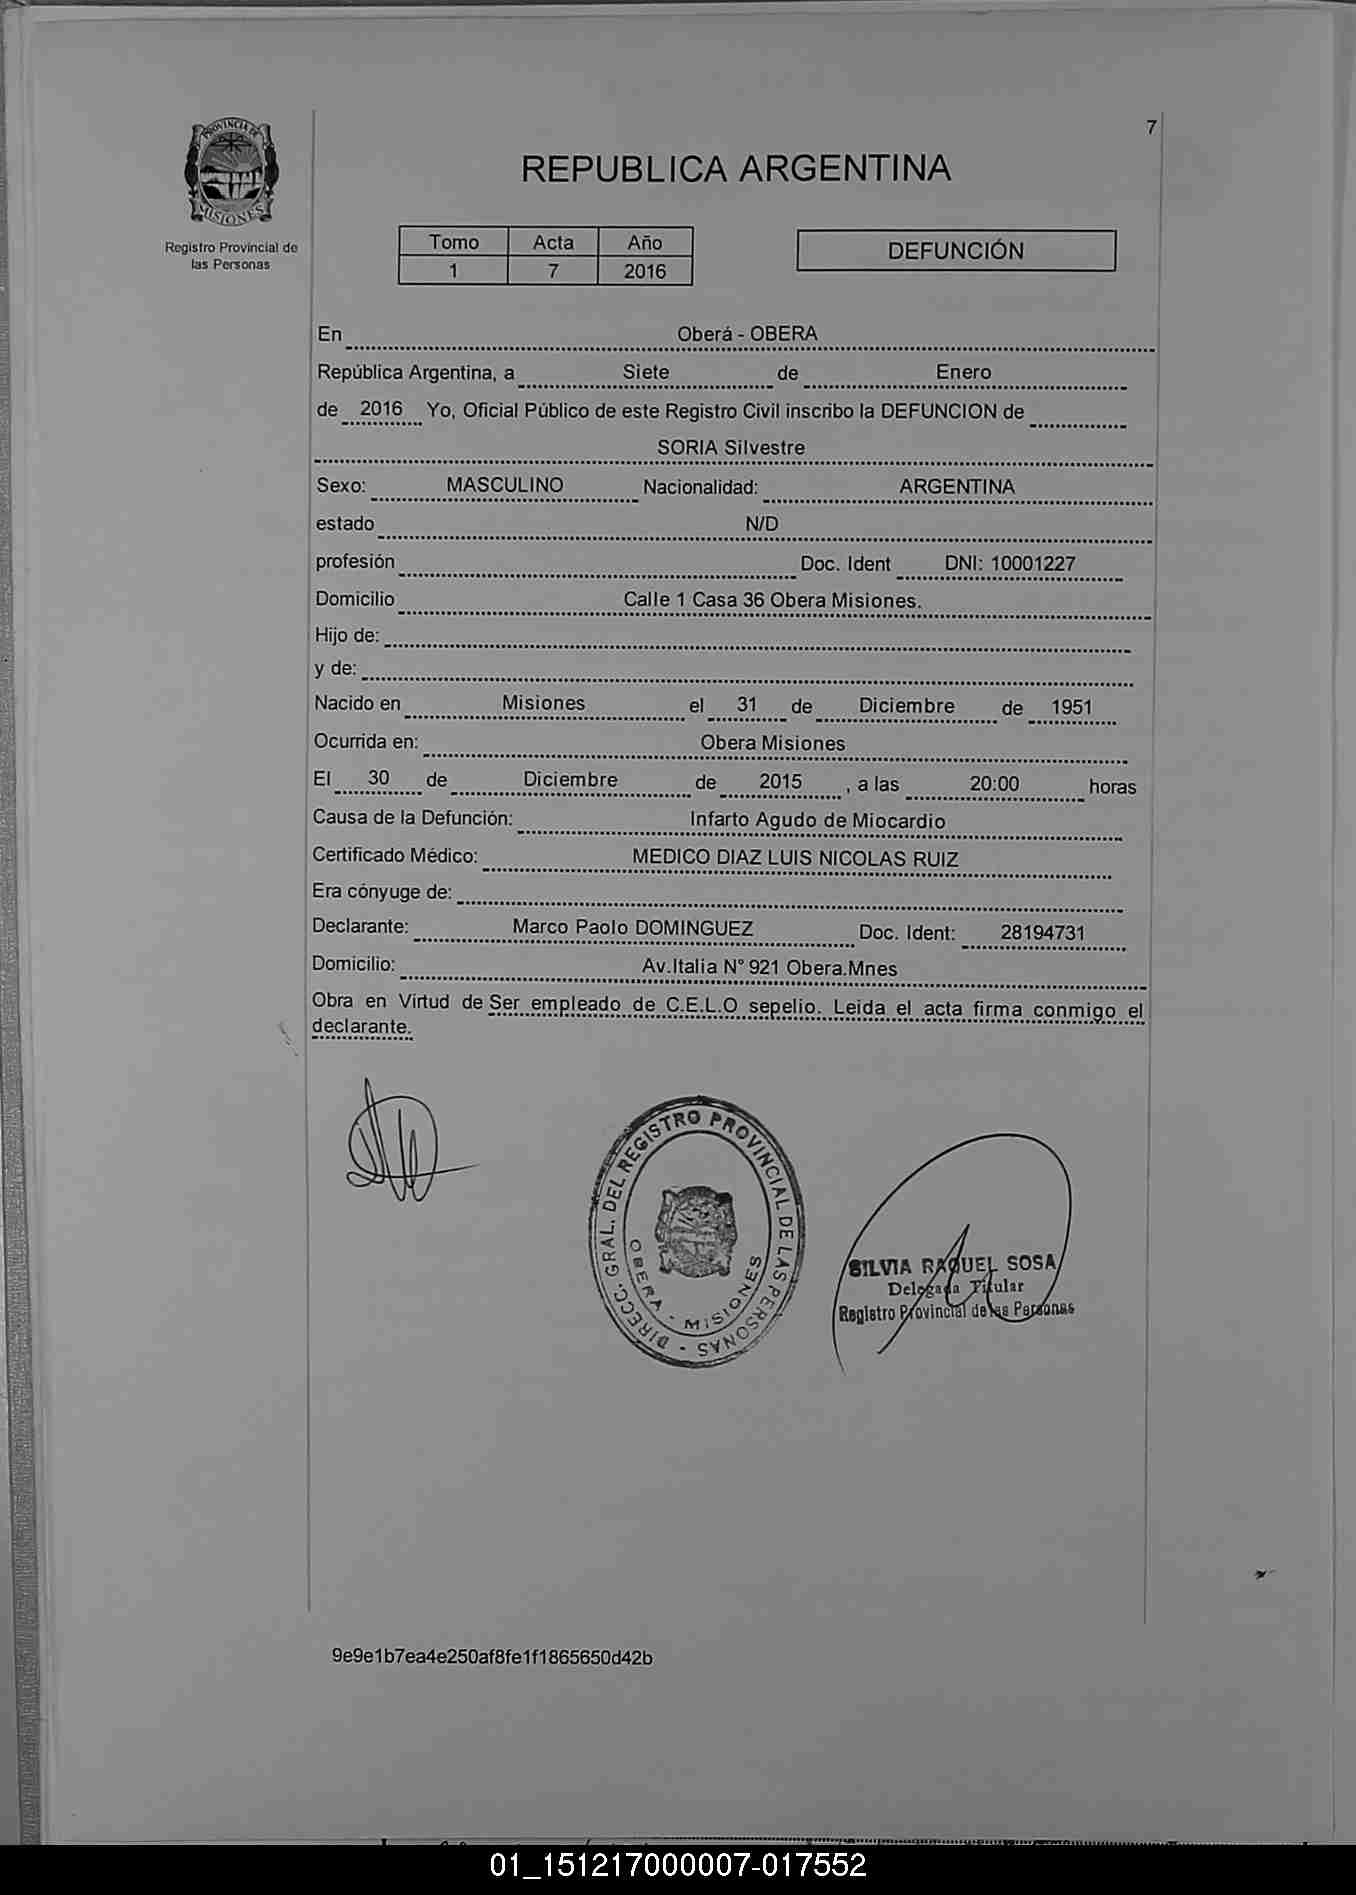 7
PROVINCIA DE
MISIONES
Registro Provincial de
las Personas
REPUBLICA ARGENTINA
Tomo Acta Año
1 7 2016
DEFUNCIÓN
En Oberá - OBERA
República Argentina, a Siete de Enero
de 2016 Yo, Oficial Público de este Registro Civil inscribo la DEFUNCION de
SORIA Silvestre
Sexo: MASCULINO Nacionalidad: ARGENTINA
estado N/D
profesión Doc. Ident DNI: 10001227
Domicilio Calle 1 Casa 36 Obera Misiones.
Hijo de:
y de:
Nacido en Misiones el 31 de Diciembre de 1951
Ocurrida en: Obera Misiones
El 30 de Diciembre de 2015 , a las 20:00 horas
Causa de la Defunción: Infarto Agudo de Miocardio
Certificado Médico: MEDICO DIAZ LUIS NICOLAS RUIZ
Era cónyuge de:
Declarante: Marco Paolo DOMINGUEZ Doc. Ident: 28194731
Domicilio: Av.Italia N° 921 Obera.Mnes
Obra en Virtud de Ser empleado de C.E.L.O sepelio. Leida el acta firma conmigo el
declarante.
DIRECC. GRAL. DEL REGISTRO PROVINCIAL DE LAS PERSONAS -
OBERA - MISIONES
SILVIA RAQUEL SOSA
Delegada Titular
Registro Provincial de las Personas
9e9e1b7ea4e250af8fe1f1865650d42b
01_151217000007-017552